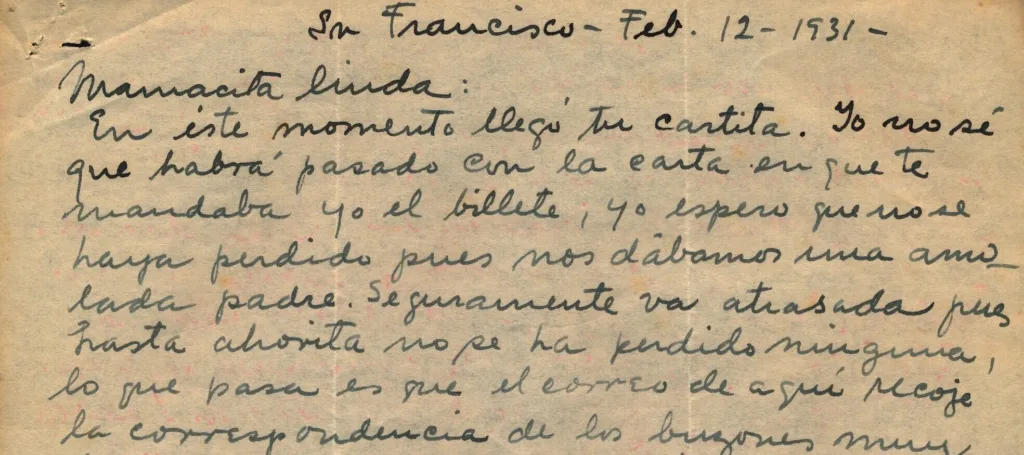 Sn Francisco - Feb. 12 - 1931 -
Mamacita linda:
En éste momento llegó tu cartita. Yo no sé
que habrá pasado con la carta en que te
mandaba yo el billete, yo espero que no se
haya perdido pues nos dábamos una amo_
lada padre. Seguramente va atrasada pues
hasta ahorita no se ha perdido ninguna,
lo que pasa es que el correo de aquí recoje
la correspondencia de los buzones muy